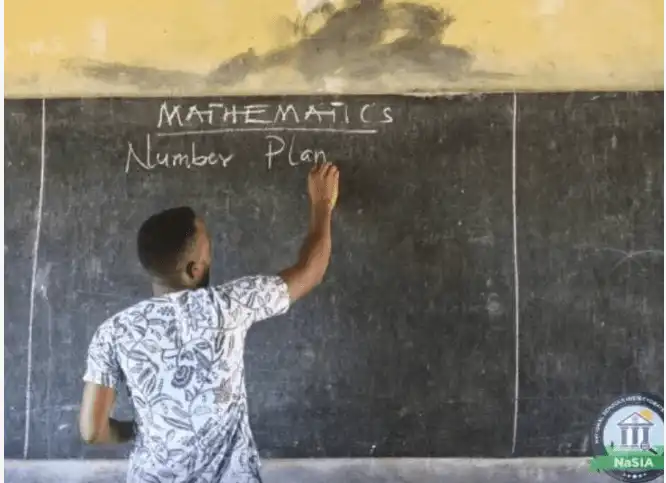 MATHEMATICS
Number Plan
NaSIA